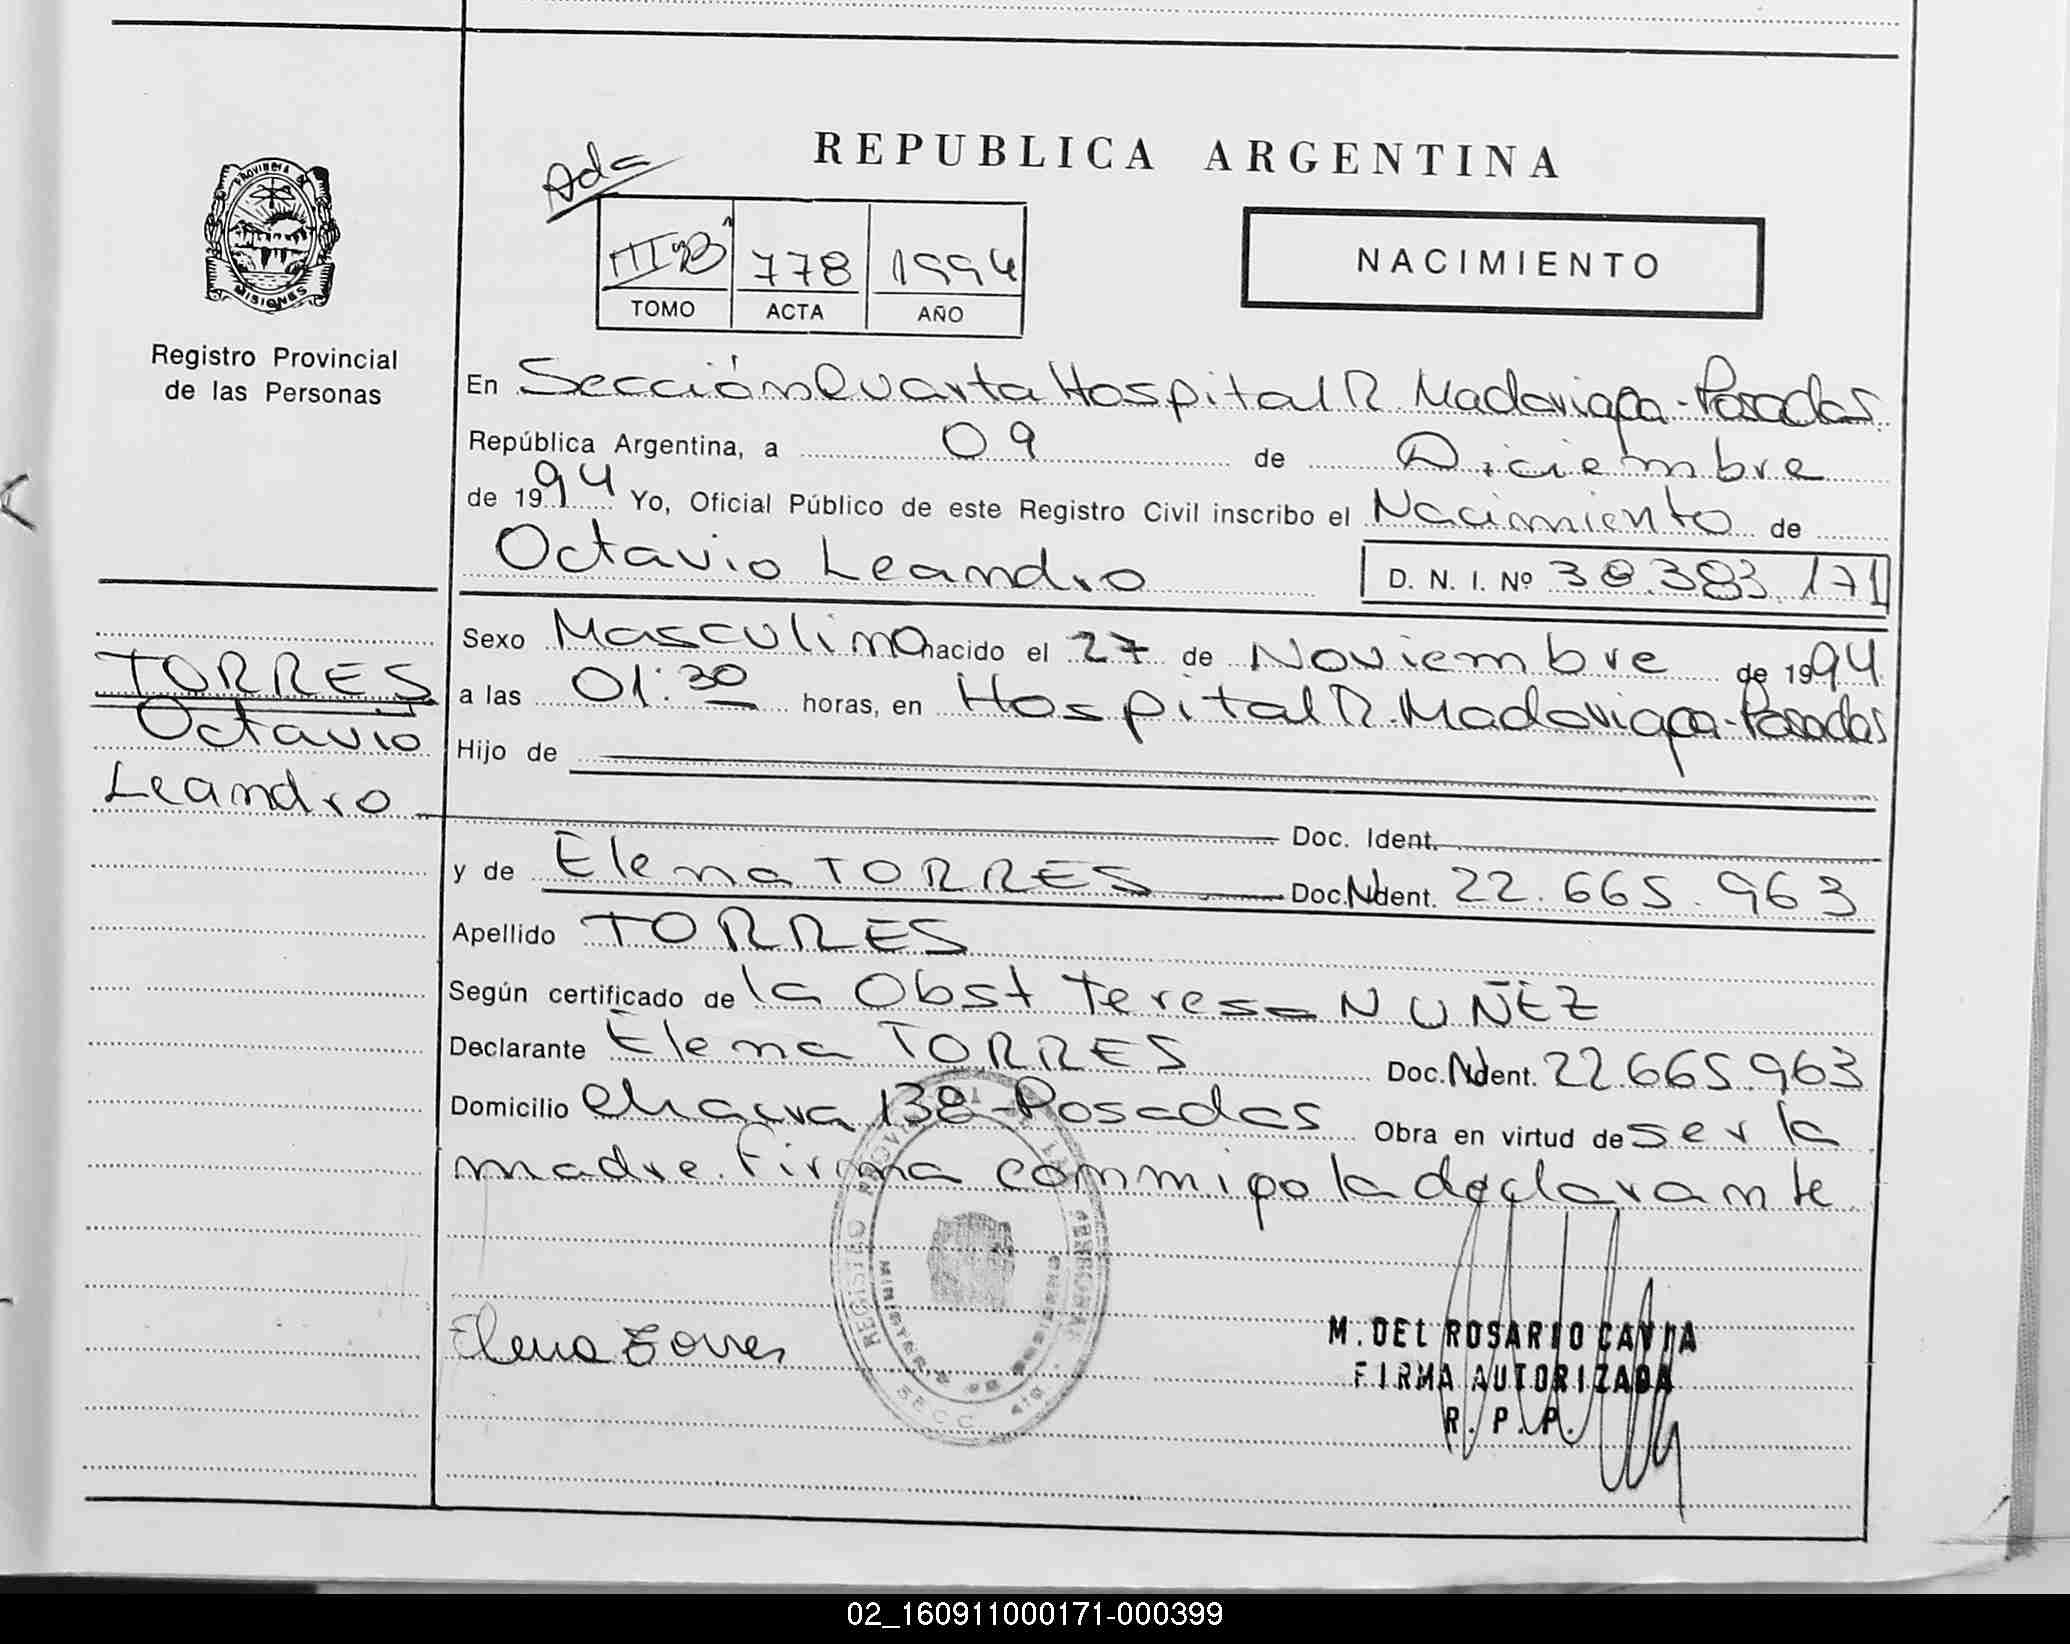 REPUBLICA ARGENTINA
Ada
III"B" 778 1994
TOMO ACTA AÑO
NACIMIENTO
PROVINCIA DE
MISIONES
Registro Provincial
de las Personas
En Sección Cuarta Hospital R. Madariaga - Posadas
República Argentina, a 09 de Diciembre
de 1994 Yo, Oficial Público de este Registro Civil inscribo el Nacimiento de
Octavio Leandro D. N. I. Nº 38.383.171
Sexo Masculino nacido el 27 de Noviembre de 1994
a las 01:30 horas, en Hospital R. Madariaga - Posadas
Hijo de
Doc. Ident.
y de Elena TORRES Doc. Ident. Nº 22.665.963
Apellido TORRES
Según certificado de la Obst Teresa NUÑEZ
Declarante Elena TORRES Doc. Ident. Nº 22.665.963
Domicilio chacra 138 - Posadas Obra en virtud de ser la
madre. Firma conmigo la declarante
TORRES
Octavio
Leandro
Elena Torres
REGISTRO PROVINCIAL DE LAS PERSONAS
MINISTERIO DE GOBIERNO
SECC. 4ta.
M. DEL ROSARIO CAVIA
FIRMA AUTORIZADA
R. P. P.
02_160911000171-000399